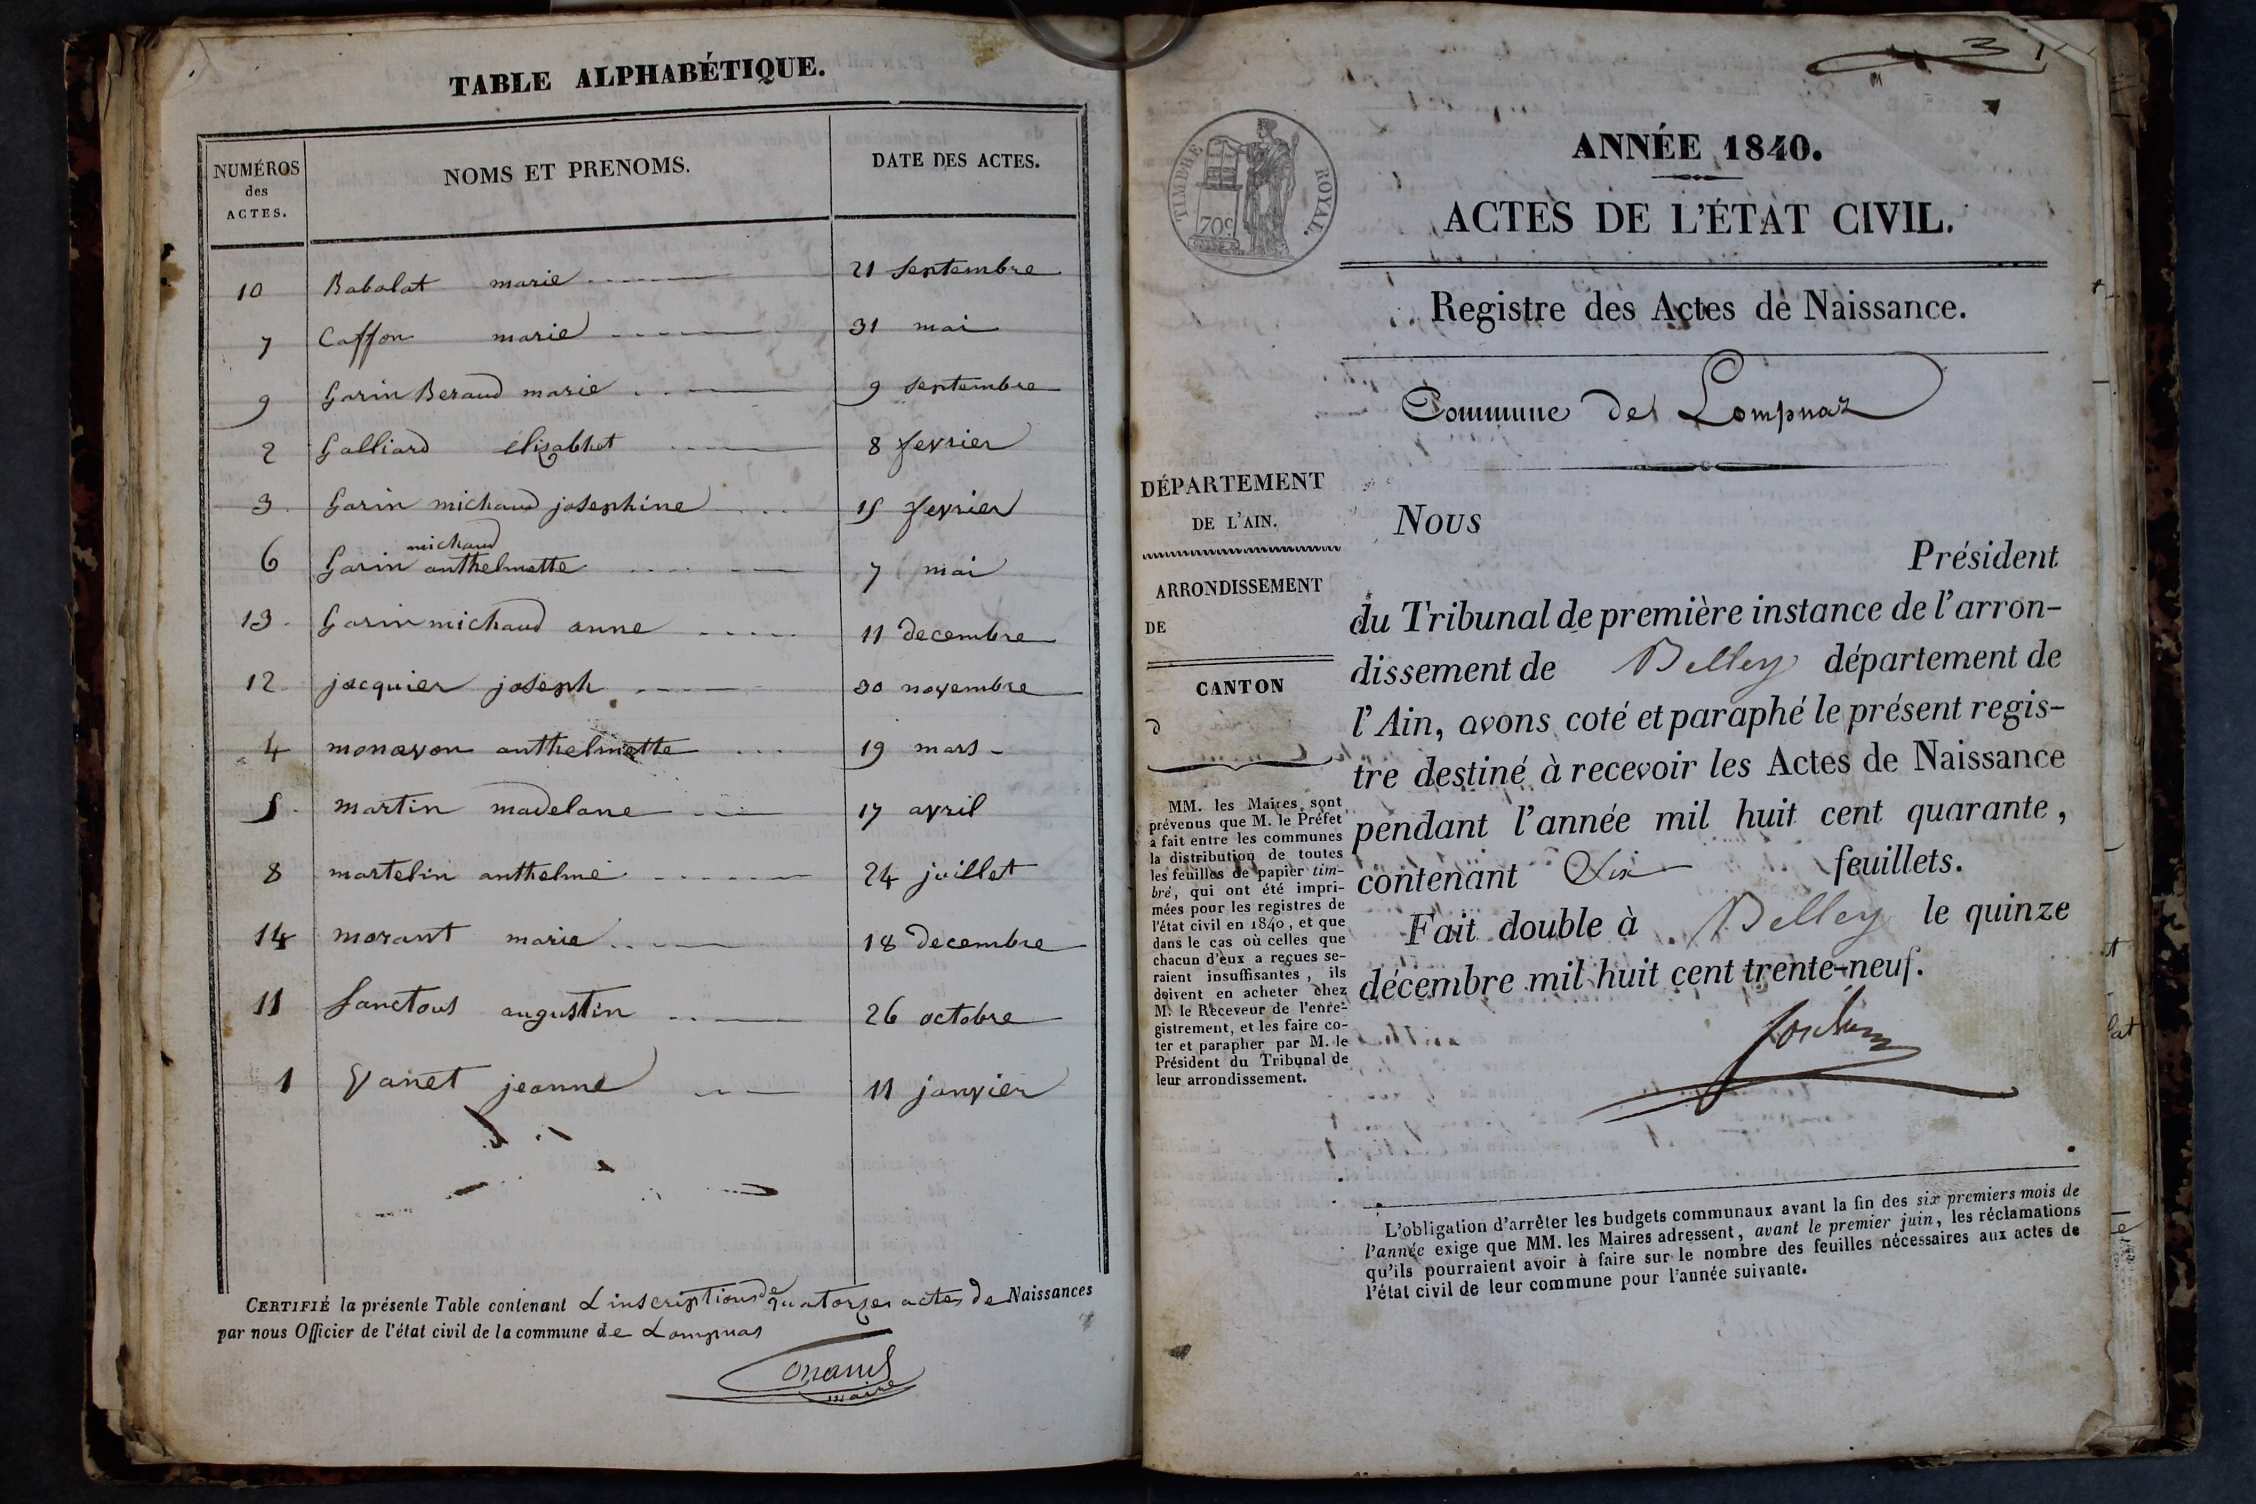 TABLE ALPHABÉTIQUE.
NUMÉROS des ACTES. NOMS ET PRENOMS. DATE DES ACTES.
10 Babolat marie 21 septembre
7 Caffon marie 31 mai
9 Garin Beraud marie 9 septembre
2 Galliard élisabhet 8 fevrier
3 Garin michaud josephine 15 fevrier
michaud
6 Garin anthelmette 7 mai
13 Garin michaud anne 11 decembre
12 jacquier joseph 30 novembre
4 monavon anthelmette 19 mars
5 martin madelane 17 avril
8 martelin anthelme 24 juillet
14 morant marie 18 decembre
11 Sanctous augustin 26 octobre
1 Vanet jeanne 11 janvier
CERTIFIÉ la présente Table contenant L'inscriptions de quatorze actes de Naissances
par nous Officier de l'état civil de la commune de Lompnas
maire
3
TIMBRE ROYAL.
70c
ANNÉE 1840.
ACTES DE L'ÉTAT CIVIL.
Registre des Actes de Naissance.
Commune de Lompnaz
DÉPARTEMENT
DE L'AIN.
ARRONDISSEMENT
DE
CANTON
d
MM. les Maires sont
prévenus que M. le Préfet
a fait entre les communes
la distribution de toutes
les feuilles de papier tim-
bré, qui ont été impri-
mées pour les registres de
l'état civil en 1840, et que
dans le cas où celles que
chacun d'eux a reçues se-
raient insuffisantes, ils
doivent en acheter chez
M. le Receveur de l'enre-
gistrement, et les faire co-
ter et parapher par M. le
Président du Tribunal de
leur arrondissement.
Nous
Président
du Tribunal de première instance de l'arron-
dissement de Belley département de
l'Ain, avons coté et paraphé le présent regis-
tre destiné à recevoir les Actes de Naissance
pendant l'année mil huit cent quarante,
contenant Six feuillets.
Fait double à Belley le quinze
décembre mil huit cent trente-neuf.
L'obligation d'arrêter les budgets communaux avant la fin des six premiers mois de
l'année exige que MM. les Maires adressent, avant le premier juin, les réclamations
qu'ils pourraient avoir à faire sur le nombre des feuilles nécessaires aux actes de
l'état civil de leur commune pour l'année suivante.